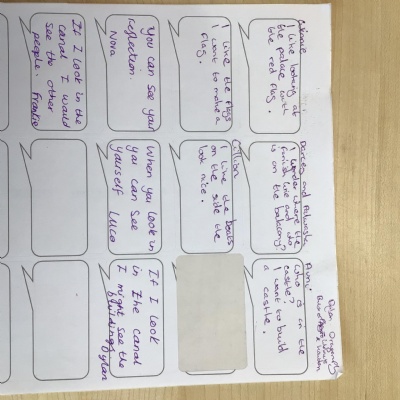 I like looking at
the palace with
the red flag.
Darcey and
I wonder where the
finish line and who
is on the balcony?
who is in the
castle?
I want to build
a castle.
I like the flags
I want to make a
flag.
Cillian
I like the boats
on the side the
look nice.
You can see your
reflection.
Nora
When you look in
you can see
yourself Luca
If I look
in the canal
I might see the
buildings Dylan
If I look in the
canal I would
see the other
people. Frankie